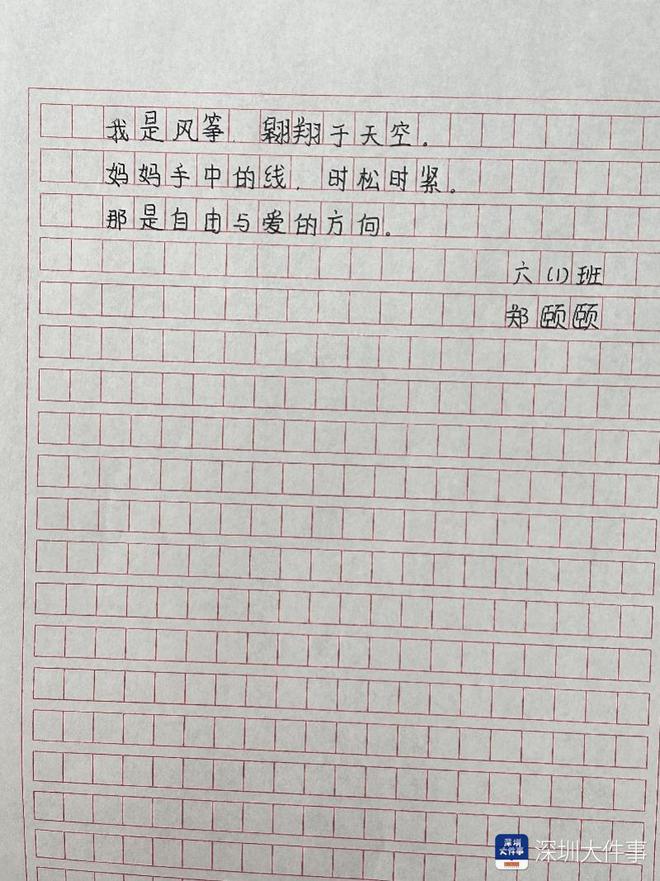 我是风筝 翱翔于天空。
妈妈手中的线，时松时紧。
那是自由与爱的方向。
六（1）班
郑颐颐
深圳大件事
深圳大件事